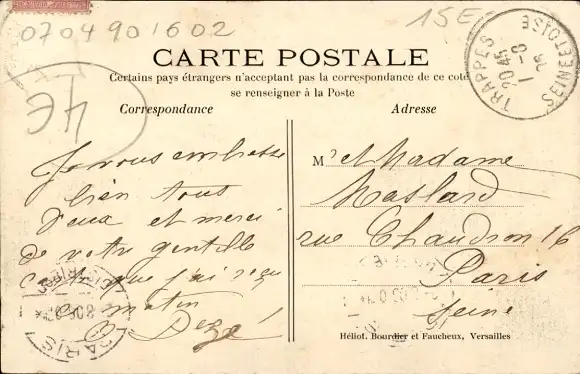 0704901602
15E
4E
TRAPPES
SEINE ET OISE
20 45
1 -8
CARTE POSTALE
Certains pays étrangers n'acceptant pas la correspondance de ce coté
se renseigner à la Poste
Correspondance
Adresse
Je vous embrasse
bien tous
deux et merci
de votre gentille
que j'ai reçu
matin
Mr et Madame
Maslard
rue Chaudron 16
Paris
Seine
PARIS
Héliot. Bourdier et Faucheux, Versailles